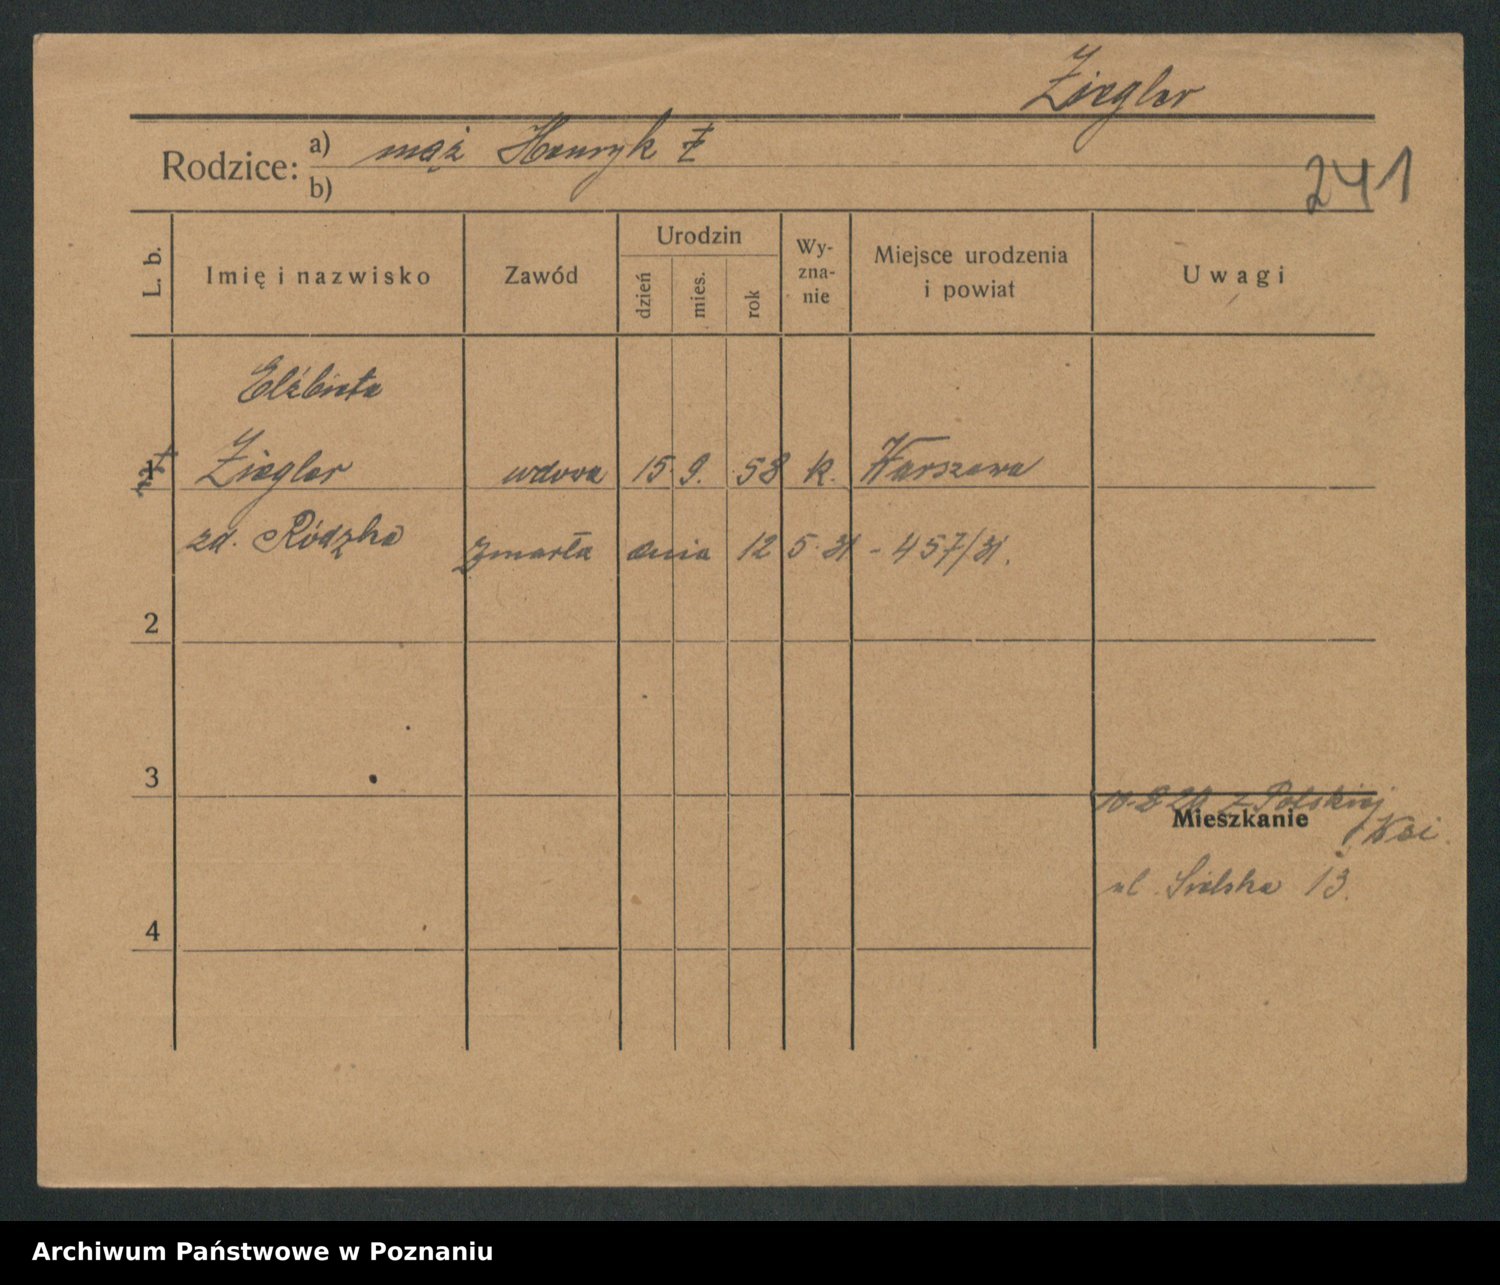 Ziegler
Rodzice: a) mąż Henryk Z
b)
241
L. b. Imię i nazwisko Zawód Urodzin dzień mies. rok Wy-zna-nie Miejsce urodzenia i powiat Uwagi
Elżbieta
1 Ziegler wdowa 15 9. 58 k. Warszawa
zd. Zmarła dnia 12 5. 31 - 457/31.
2
3
z Polskiej
Mieszkanie
ul. 13.
4
Archiwum Państwowe w Poznaniu